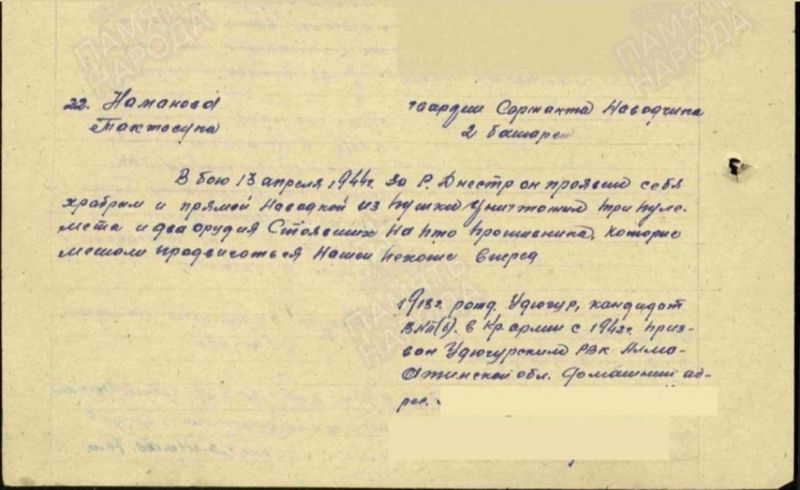 ПАМЯТЬ НАРОДА
ПАМЯТЬ НАРОДА
22. Наманова
Тактосуна
гвардии Сержанта Наводчика
2 батареи
В бою 13 апреля 1944г. За Р. Днестр он проявил себя
храбрым и прямой Наводкой из пушки уничтожил три пуле-
мета и два орудия Стоявших На пто противника, которые
мешали продвигаться Нашей пехоте вперед
1918г. рожд. Удюгур, кандидат
ВКП(б). в Кр. армии с 1942г. приз-
ван Удюгурским РВК Алма-
Атинской обл. Домашний ад-
рес.
ПАМЯТЬ НАРОДА